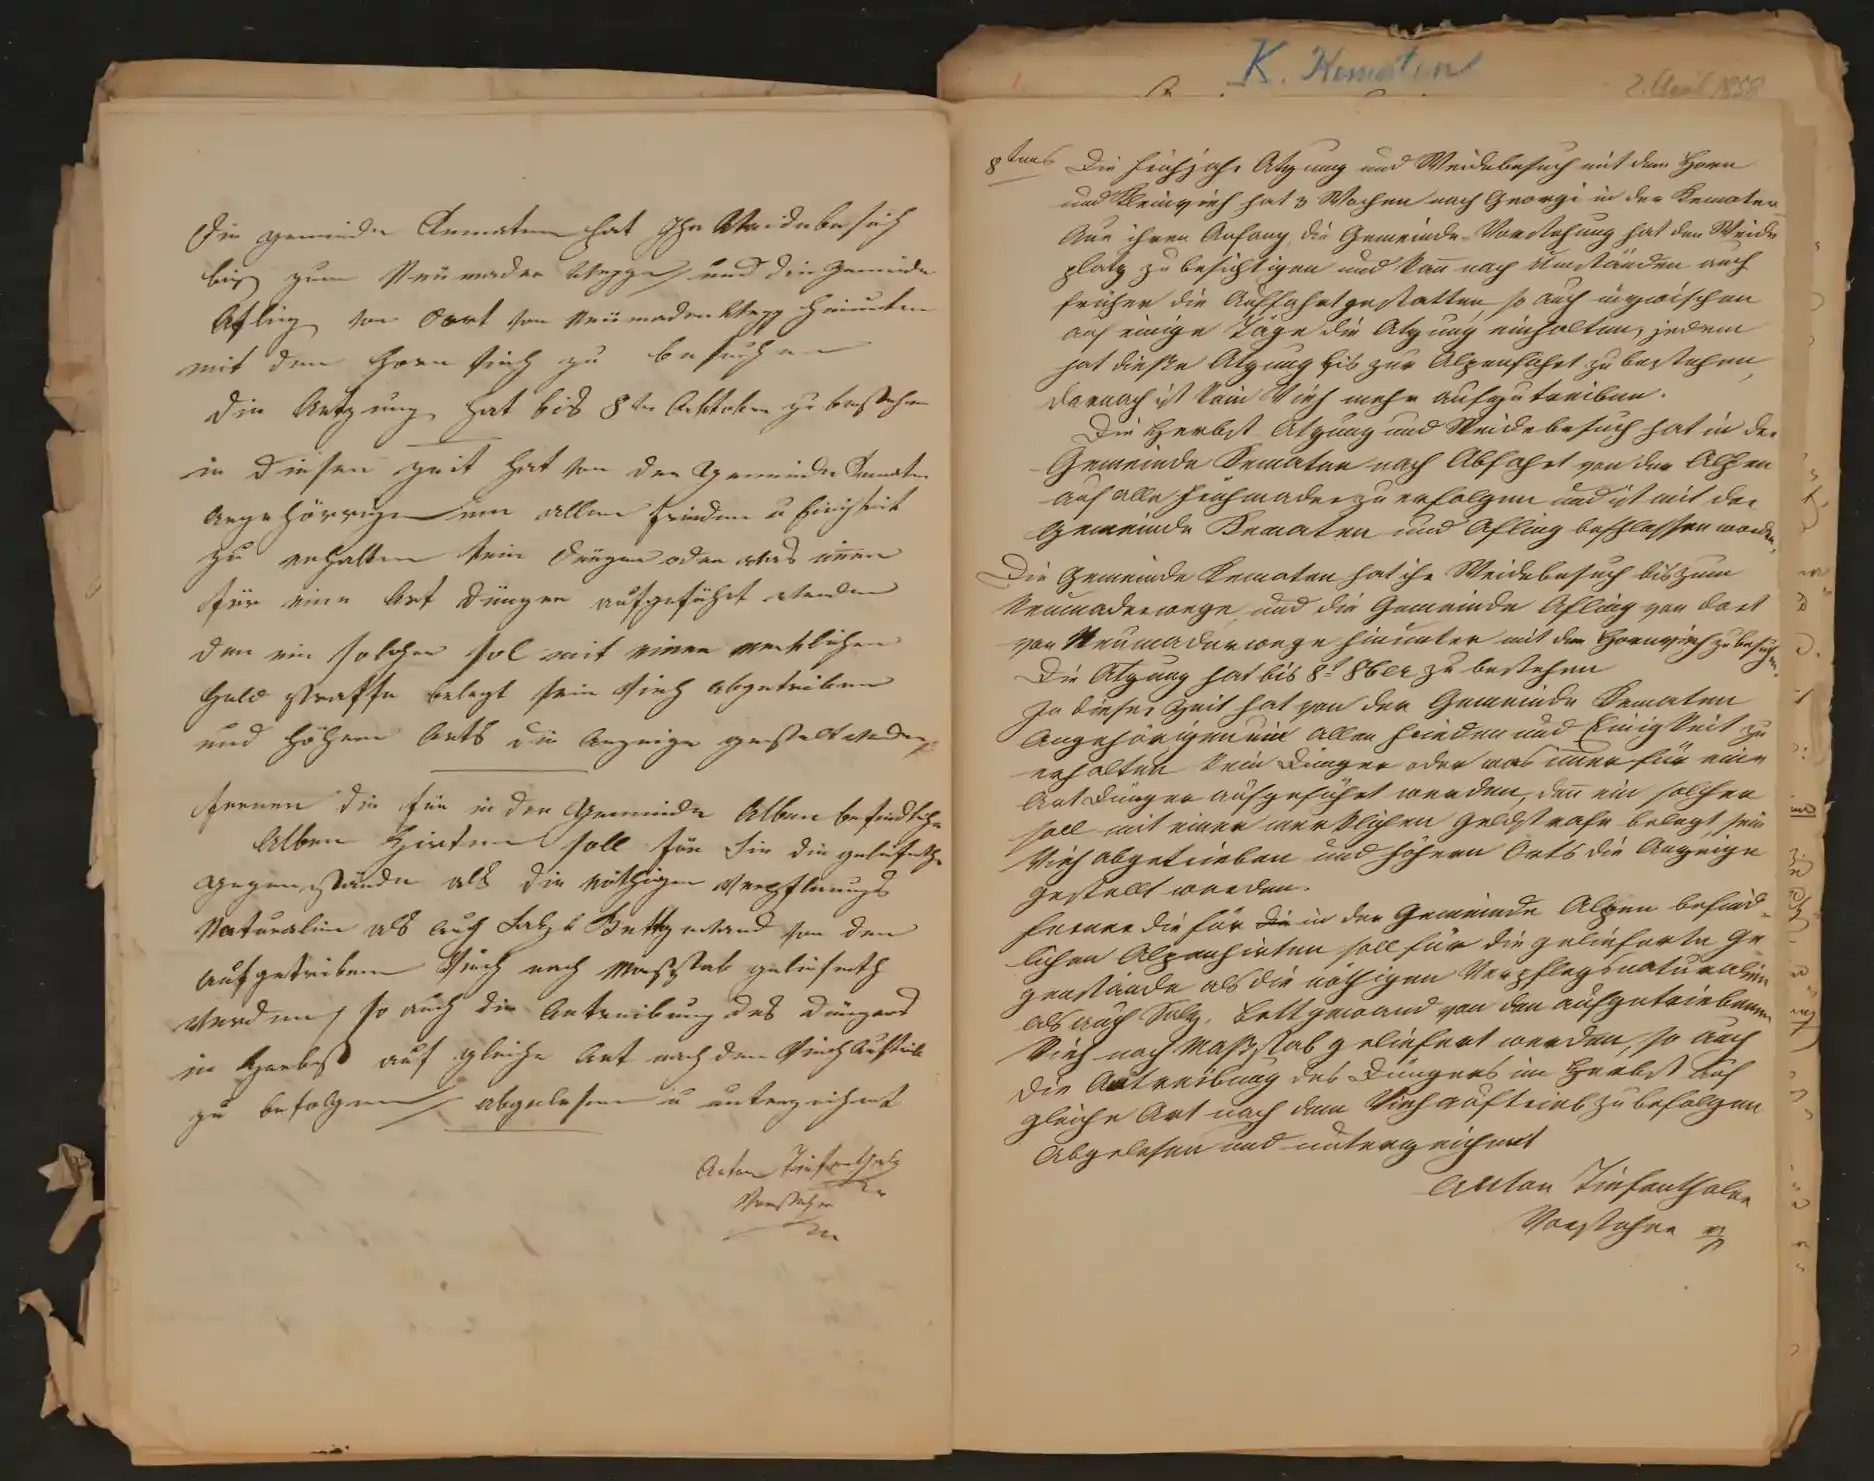 Die gemeinde Kematen hat Ihr Weidebesuch
bis zum Neümader Wege und die Gemeinde
Afling von dort von Neümader Weg hinunter
mit dem Horn Vieh zu besuchen
Die Aetzung hat bis 8ten Acktober zu bestehen
in diesen zeit hat von der Gemeinde Kematen
Angehörrigen um allen frieden u Einigkeit
zu erhalten kein Dünger oder was imer
für eine Art Dünger aufgeführt werden
den ein solcher sol mit einer merklichen
Geld straffe belegt sein Vieh abgetriben
und höhern Orts die Anzeige gestelt werden
ferner die für in der Gemeinde Alben befindliche
Alben Hirten soll für Sie die geliferthe
gegen stände als die nöthigen Verpflegungs
Naturalien als auch Salz u Bettgewand von den
aufgetribenen Viech nach Masstab gelieferth
werden so auch die Antreibung des Düngers
in Herbst auf gleiche Art nach den Viech Auftrib
zu befolgen abgelesen u unterzeichnet
Anton Tiefenthaler
Vorsteher
K. Kematen
2. April 1858
8tens Die Frühjahr Atzung und Weidebesuch mit dem Horn
und Kleinvieh hat 3 Wochen nach Georgi in der Kemater
Aue ihren Anfang, die Gemeinde-Vorstehung hat den Weide
platz zu besichtigen und kan̅ nach Umständen auch
früher die Auffahrt gestatten, so auch inzwischen
auf einige Täge die Atzung einhalten, jedem
hat dieße Atzung bis zur Alpenfahrt zu bestehen,
darnach ist kein Vieh mehr aufzutreiben.
Die Herbst Atzung und Weidebesuch hat in der
Gemeinde Kematen nach Abfahrt von der Alpen
auf alle Frühmader zu erfolgen und ist mit der
Gemeinde Kematen und Afling beschlossen worden,
Die Gemeinde Kematen hat ihr Weidebesuch bis zum
Neumaderwege, und die Gemeinde Afling von dort
von Neumaderwege hinunter mit dem Hornvieh zu besuchen.
Die Atzung hat bis 8t 8ber zu bestehen
In dieser Zeit hat von der Gemeinde Kematen
Angehörigen um allen Frieden und Einigkeit zu
erhalten kein Dünger oder was imer für eine
Art Dünger aufgeführt werden, den̅ ein solcher
soll mit einer merklichen Geldstrafe belegt, sein
Vieh abgetrieben und höhern Orts die Anzeige
gestellt werden.
Ferner die für die in der Gemeinde Alpen befind-
lichen Alpenhirten soll für die gelieferte Ge
genstände als die nöthigen Verpflegsnaturalien
als auch Salz, Bettgewand von den aufgetriebenen
Vieh nach Maßstab geliefert werden, so auch
die Antreibung des Düngers im Herbst auf
gleiche Art nach dem Viehauftrieb zu befolgen
Abgelesen und unterzeichnet
Anton Tiefenthaler
Vorsteher